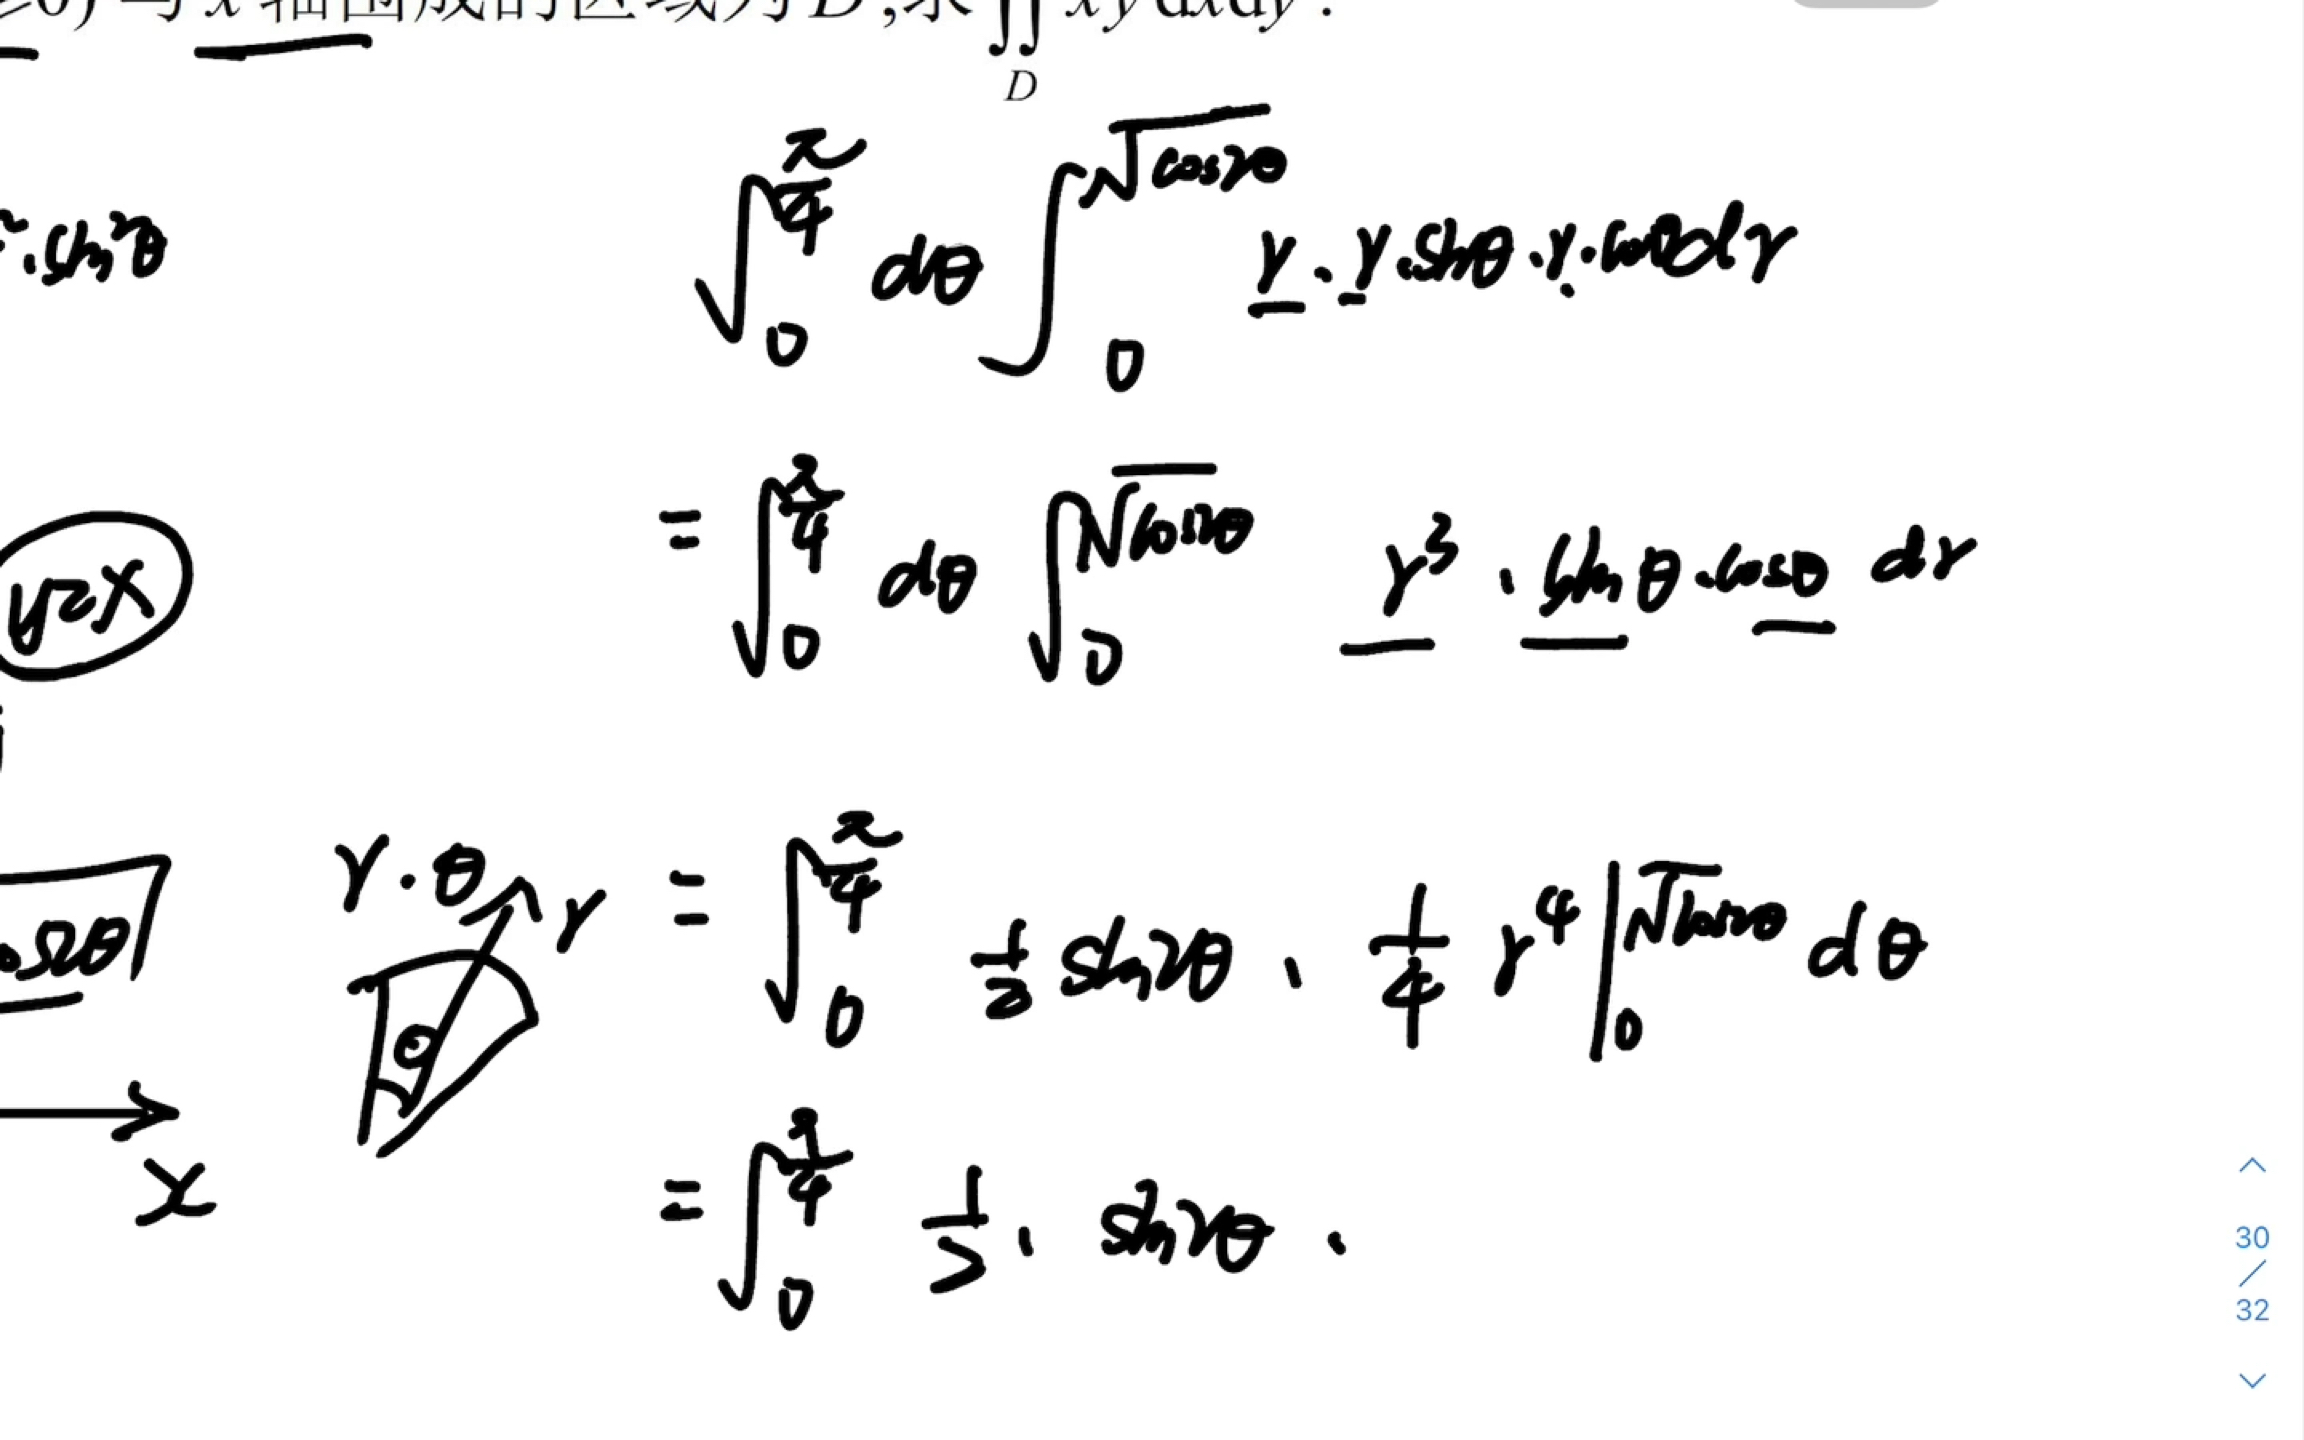 ≥0) 与 x 轴围成的区域为 D ,求 ∬ xy dxdy .
D
²·sin²θ
∫₀^(π/4) dθ ∫₀^(√cos2θ) r · r·sinθ · r·cosθ dr
= ∫₀^(π/4) dθ ∫₀^(√cos2θ) r³ · sinθ · cosθ dr
y=x
os2θ
r·θ
r
θ
x
= ∫₀^(π/4) 1/2 sin2θ · 1/4 r⁴ |₀^(√cos2θ) dθ
= ∫₀^(π/4) 1/2 · sin2θ ·
30
/
32